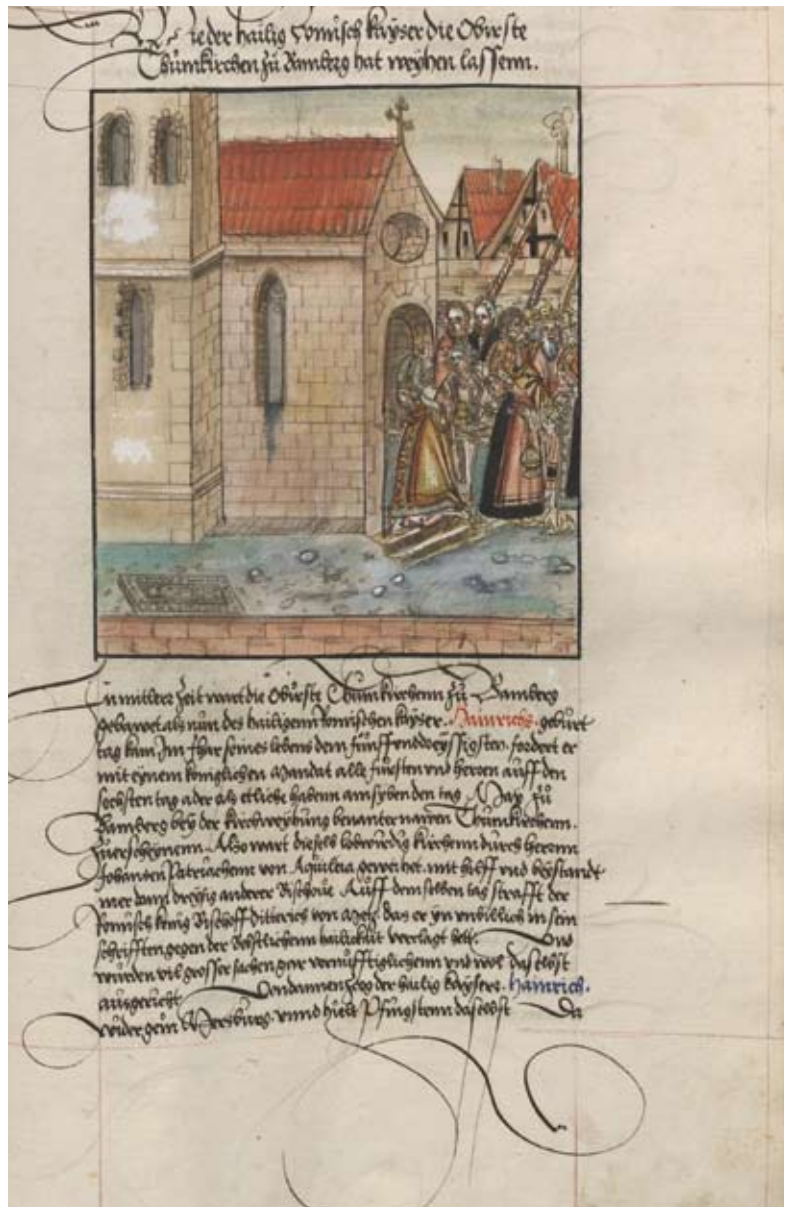 Wie der hailig Romisch kayser die Obirste
Thumkirchen zu Bamberg hat weyhen lassenn.
In mitler zeit wart die Obirste Thumkirchenn zu Bamberg
gebawet als nun des hailigenn Romischen kayser. Hainrichs. geburt
tag kam Im Jhar seines lebens dem funffunddreyssigsten. fordert er
mit eynem koniglichen Mandat alle fursten und herren auff den
sechsten tag ader als etliche habenn am syben den tag May zu
Bamberg bey der kirchweyhung benanter newen Thumkirchenn.
zuerscheynenn. Also wart diesels lobwurdig kirchenn durch herrnn
Johansen Patriachenn von Aquileia geweihet. mit hilff und beystandt
mer dann dreysig anderer Bischove Auff dem selben tag strafft der
Romisch konig Bischoff Ditterich von Metz das er yn unbillich in sein
schrifften gegen der Bebstlichenn hailickait verclagt hett. Und
wurden vil grosser sachen gar vernufftiglichenn und wol daselbst
ausgericht Vondannen zog der hailig kaysers. Hainrich.
wider gein Mersburg. unnd hielt Pfingstenn daselbst Da